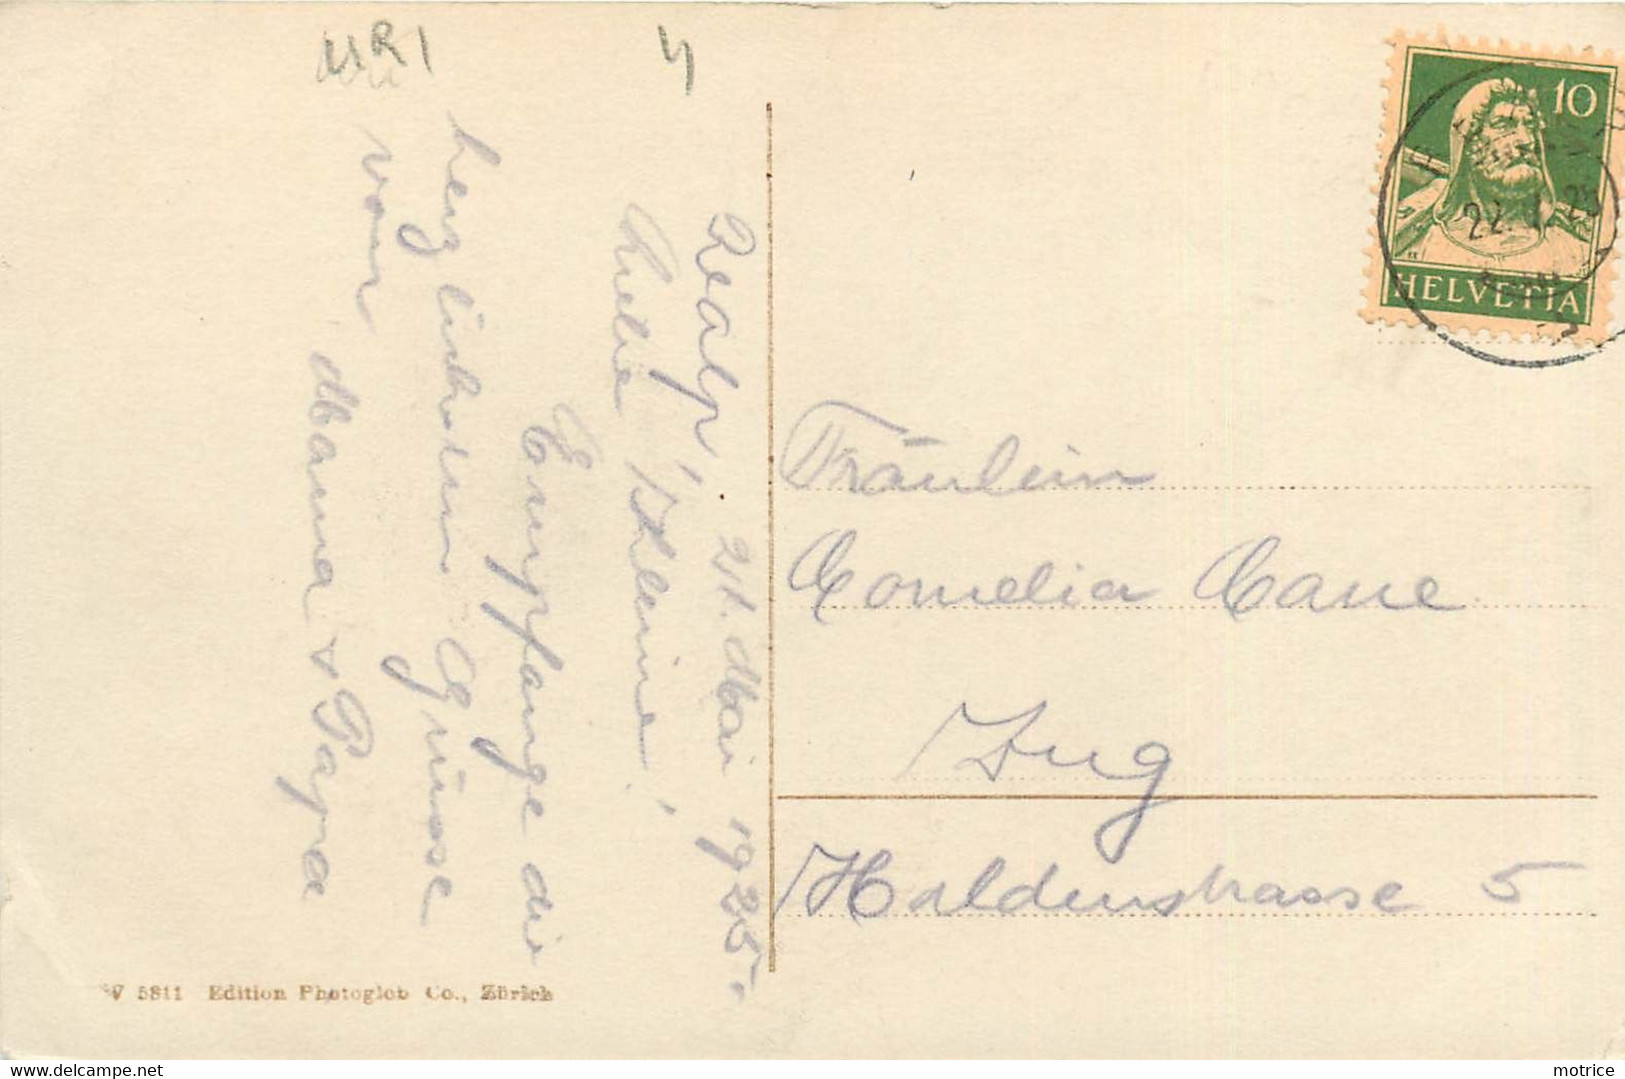 URI
Realp, 21. Mai 1925.
Liebe Kleine!
Empfange die
herzlichsten Grüsse
von
Mama & Papa
10
HELVETIA
22. 25
Fräulein
Cornelia
Zug
Haldenstrasse 5
5811 Edition Photoglob Co., Zürich
motrice
delcampe.net